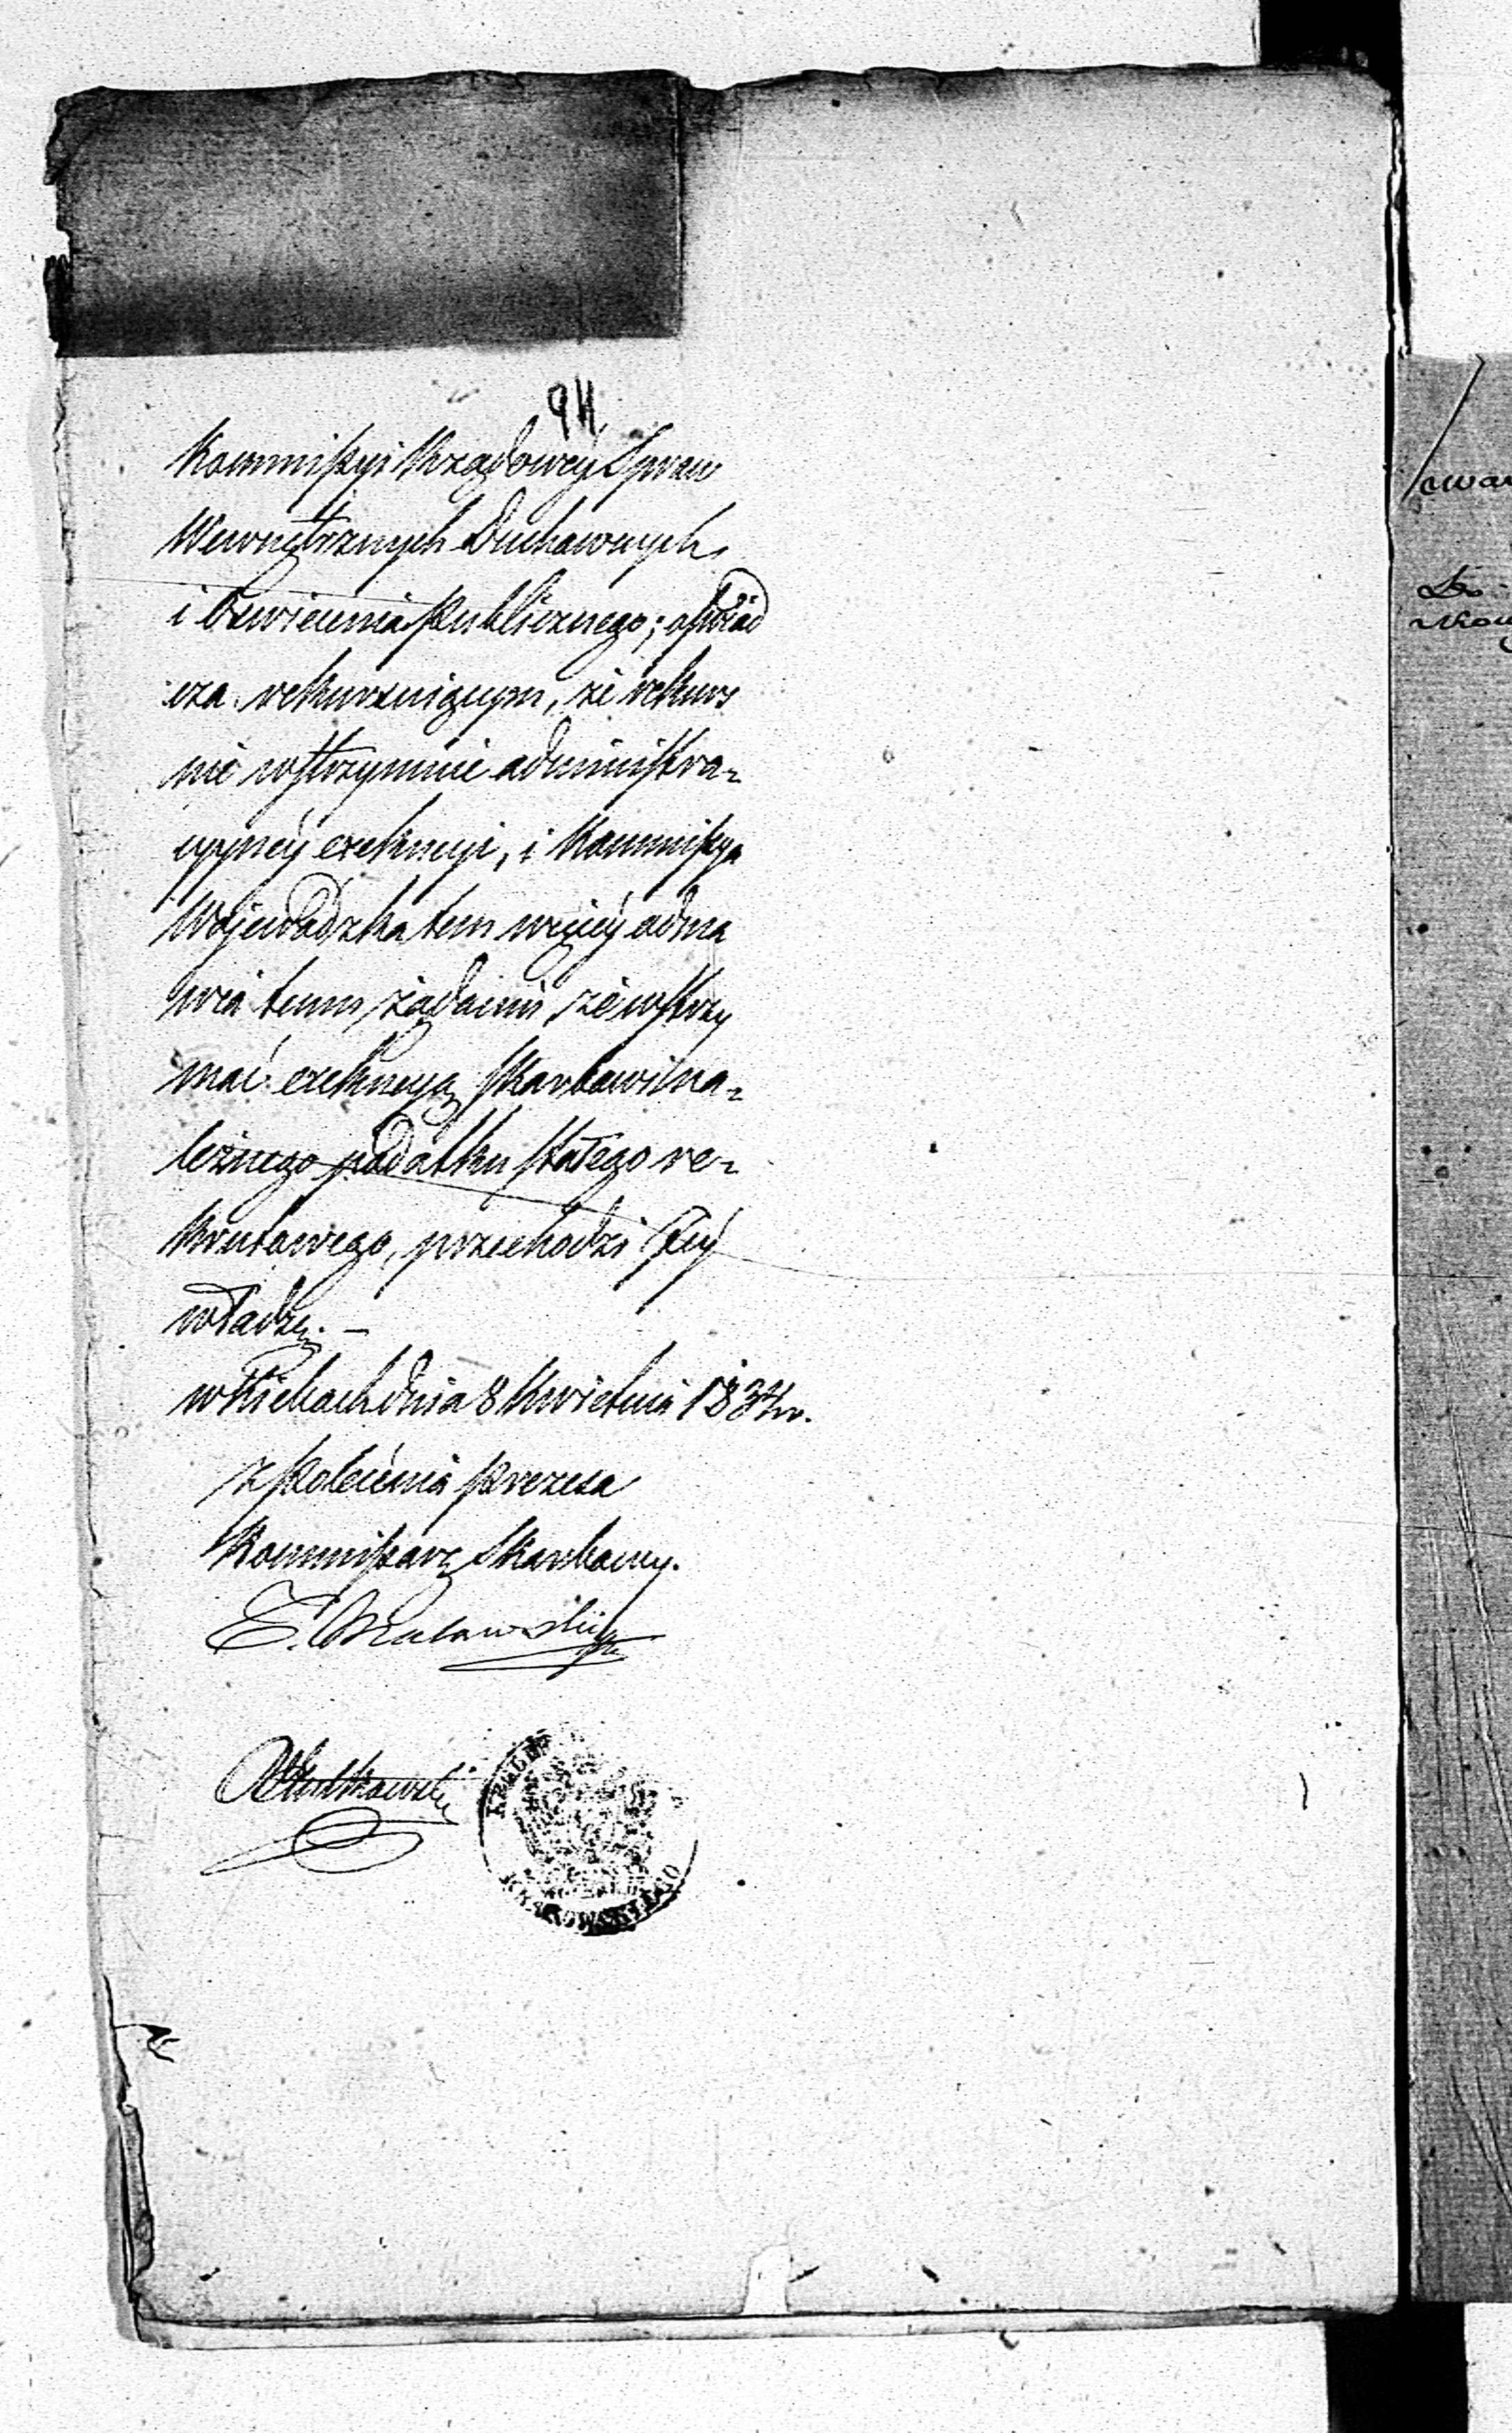 94
Kommissyi Rządowéy Spraw
Wewnętrznych Duchownych
i Oświecenia Publicznego; oświad
cza rekursuiącym, że rekurs
nie wstrzymuie administra-
cyynéy exekucyi, i Kommissya
Wojewódzka tem więcéy odma
wia temu żądaniu, że wstrzy
mać exekucyą Skarbowi na-
leżnego podatku stałego re-
krutowego, przechodzi Jéy
władzę. —
w Kielcach dnia 8 Kwietnia 1834 r.
z Polecenia Prezesa
Kommissarz Skarbowy.
KRAKOWSKIEGO